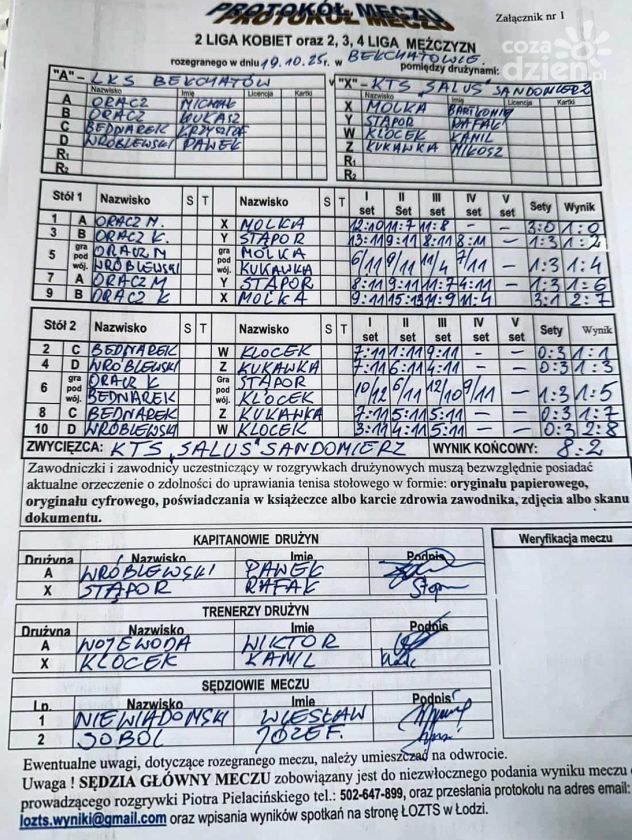 PROTOKÓŁ MECZU
Załącznik nr 1
coza
dzień.pl
2 LIGA KOBIET oraz 2, 3, 4 LIGA MĘŻCZYZN
rozegranego w dniu 19.10.25r w BEŁCHATOWIE. pomiędzy drużynami:
"A" – LKS BEŁCHATÓW v "X" – KTS „SALUS" SANDOMIERZ
Nazwisko Imię Licencja Kartki Nazwisko Imię Licencja Kartki
A ORACZ MICHAŁ X MOLKA BARTŁOMIEJ
B ORACZ ŁUKASZ Y STĄPÓR RAFAŁ
C BEDNAREK KRZYSZTOF W KLOCEK KAMIL
D WRÓBLEWSKI PAWEŁ Z KUKAWKA MIŁOSZ
R1 R1
R2 R2
Stół 1 Nazwisko S T Nazwisko I set II set III set IV set V set Sety Wynik
1 A ORACZ M. X MOLKA 12:10 11:7 11:8 – – 3:0 1:0
3 B ORACZ K. Y STĄPÓR 13:11 9:11 8:11 8:11 – 1:3 1:2
5 gra pod wój. ORACZ M WRÓBLEWSKI gra pod wój. MOLKA KUKAWKA 6/11 9/11 11/4 7/11 1:3 1:4
7 A ORACZ M Y STĄPÓR 8:11 9:11 11:7 4:11 – 1:3 1:6
9 B ORACZ K X MOLKA 9:11 15:13 11:9 11:4 3:1 2:7
Stół 2 Nazwisko S T Nazwisko I set II set III set IV set V set Sety Wynik
2 C BEDNAREK W KLOCEK 7:11 1:11 9:11 – – 0:3 1:1
4 D WRÓBLEWSKI Z KUKAWKA 7:11 6:11 4:11 – – 0:3 1:3
6 gra pod wój. ORACZ K BEDNAREK Gra pod wój. STĄPÓR KLOCEK 10/12 6/11 12/10 9/11 1:3 1:5
8 C BEDNAREK Z KUKAWKA 7:11 5:11 5:11 – – 0:3 1:7
10 D WRÓBLEWSKI W KLOCEK 3:11 4:11 5:11 – – 0:3 2:8
ZWYCIĘZCA: KTS „SALUS" SANDOMIERZ WYNIK KOŃCOWY: 8:2
Zawodniczki i zawodnicy uczestniczący w rozgrywkach drużynowych muszą bezwzględnie posiadać
aktualne orzeczenie o zdolności do uprawiania tenisa stołowego w formie: oryginału papierowego,
oryginału cyfrowego, poświadczania w książeczce albo karcie zdrowia zawodnika, zdjęcia albo skanu
dokumentu.
KAPITANOWIE DRUŻYN Weryfikacja meczu
Drużyna Nazwisko Imię Podpis
A WRÓBLEWSKI PAWEŁ
X STĄPÓR RAFAŁ
TRENERZY DRUŻYN
Drużyna Nazwisko Imię Podpis
A WOJEWODA WIKTOR
X KLOCEK KAMIL
SĘDZIOWIE MECZU
Lp. Nazwisko Imię Podpis
1 NIEWIADOMSKI WIESŁAW
2 SOBOL JÓZEF.
Ewentualne uwagi, dotyczące rozegranego meczu, należy umieszczać na odwrocie.
Uwaga ! SĘDZIA GŁÓWNY MECZU zobowiązany jest do niezwłocznego podania wyniku meczu
prowadzącego rozgrywki Piotra Pielacińskiego tel.: 502-647-899, oraz przesłania protokołu na adres email:
lozts.wyniki@gmail.com oraz wpisania wyników spotkań na stronę ŁOZTS w Łodzi.